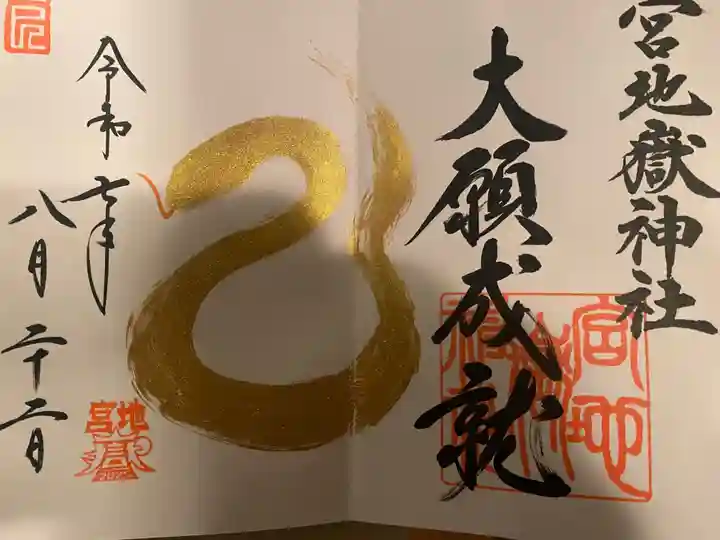 宮地嶽神社
大願成就
令和七年
八月二十二日
巳
宮地
2025